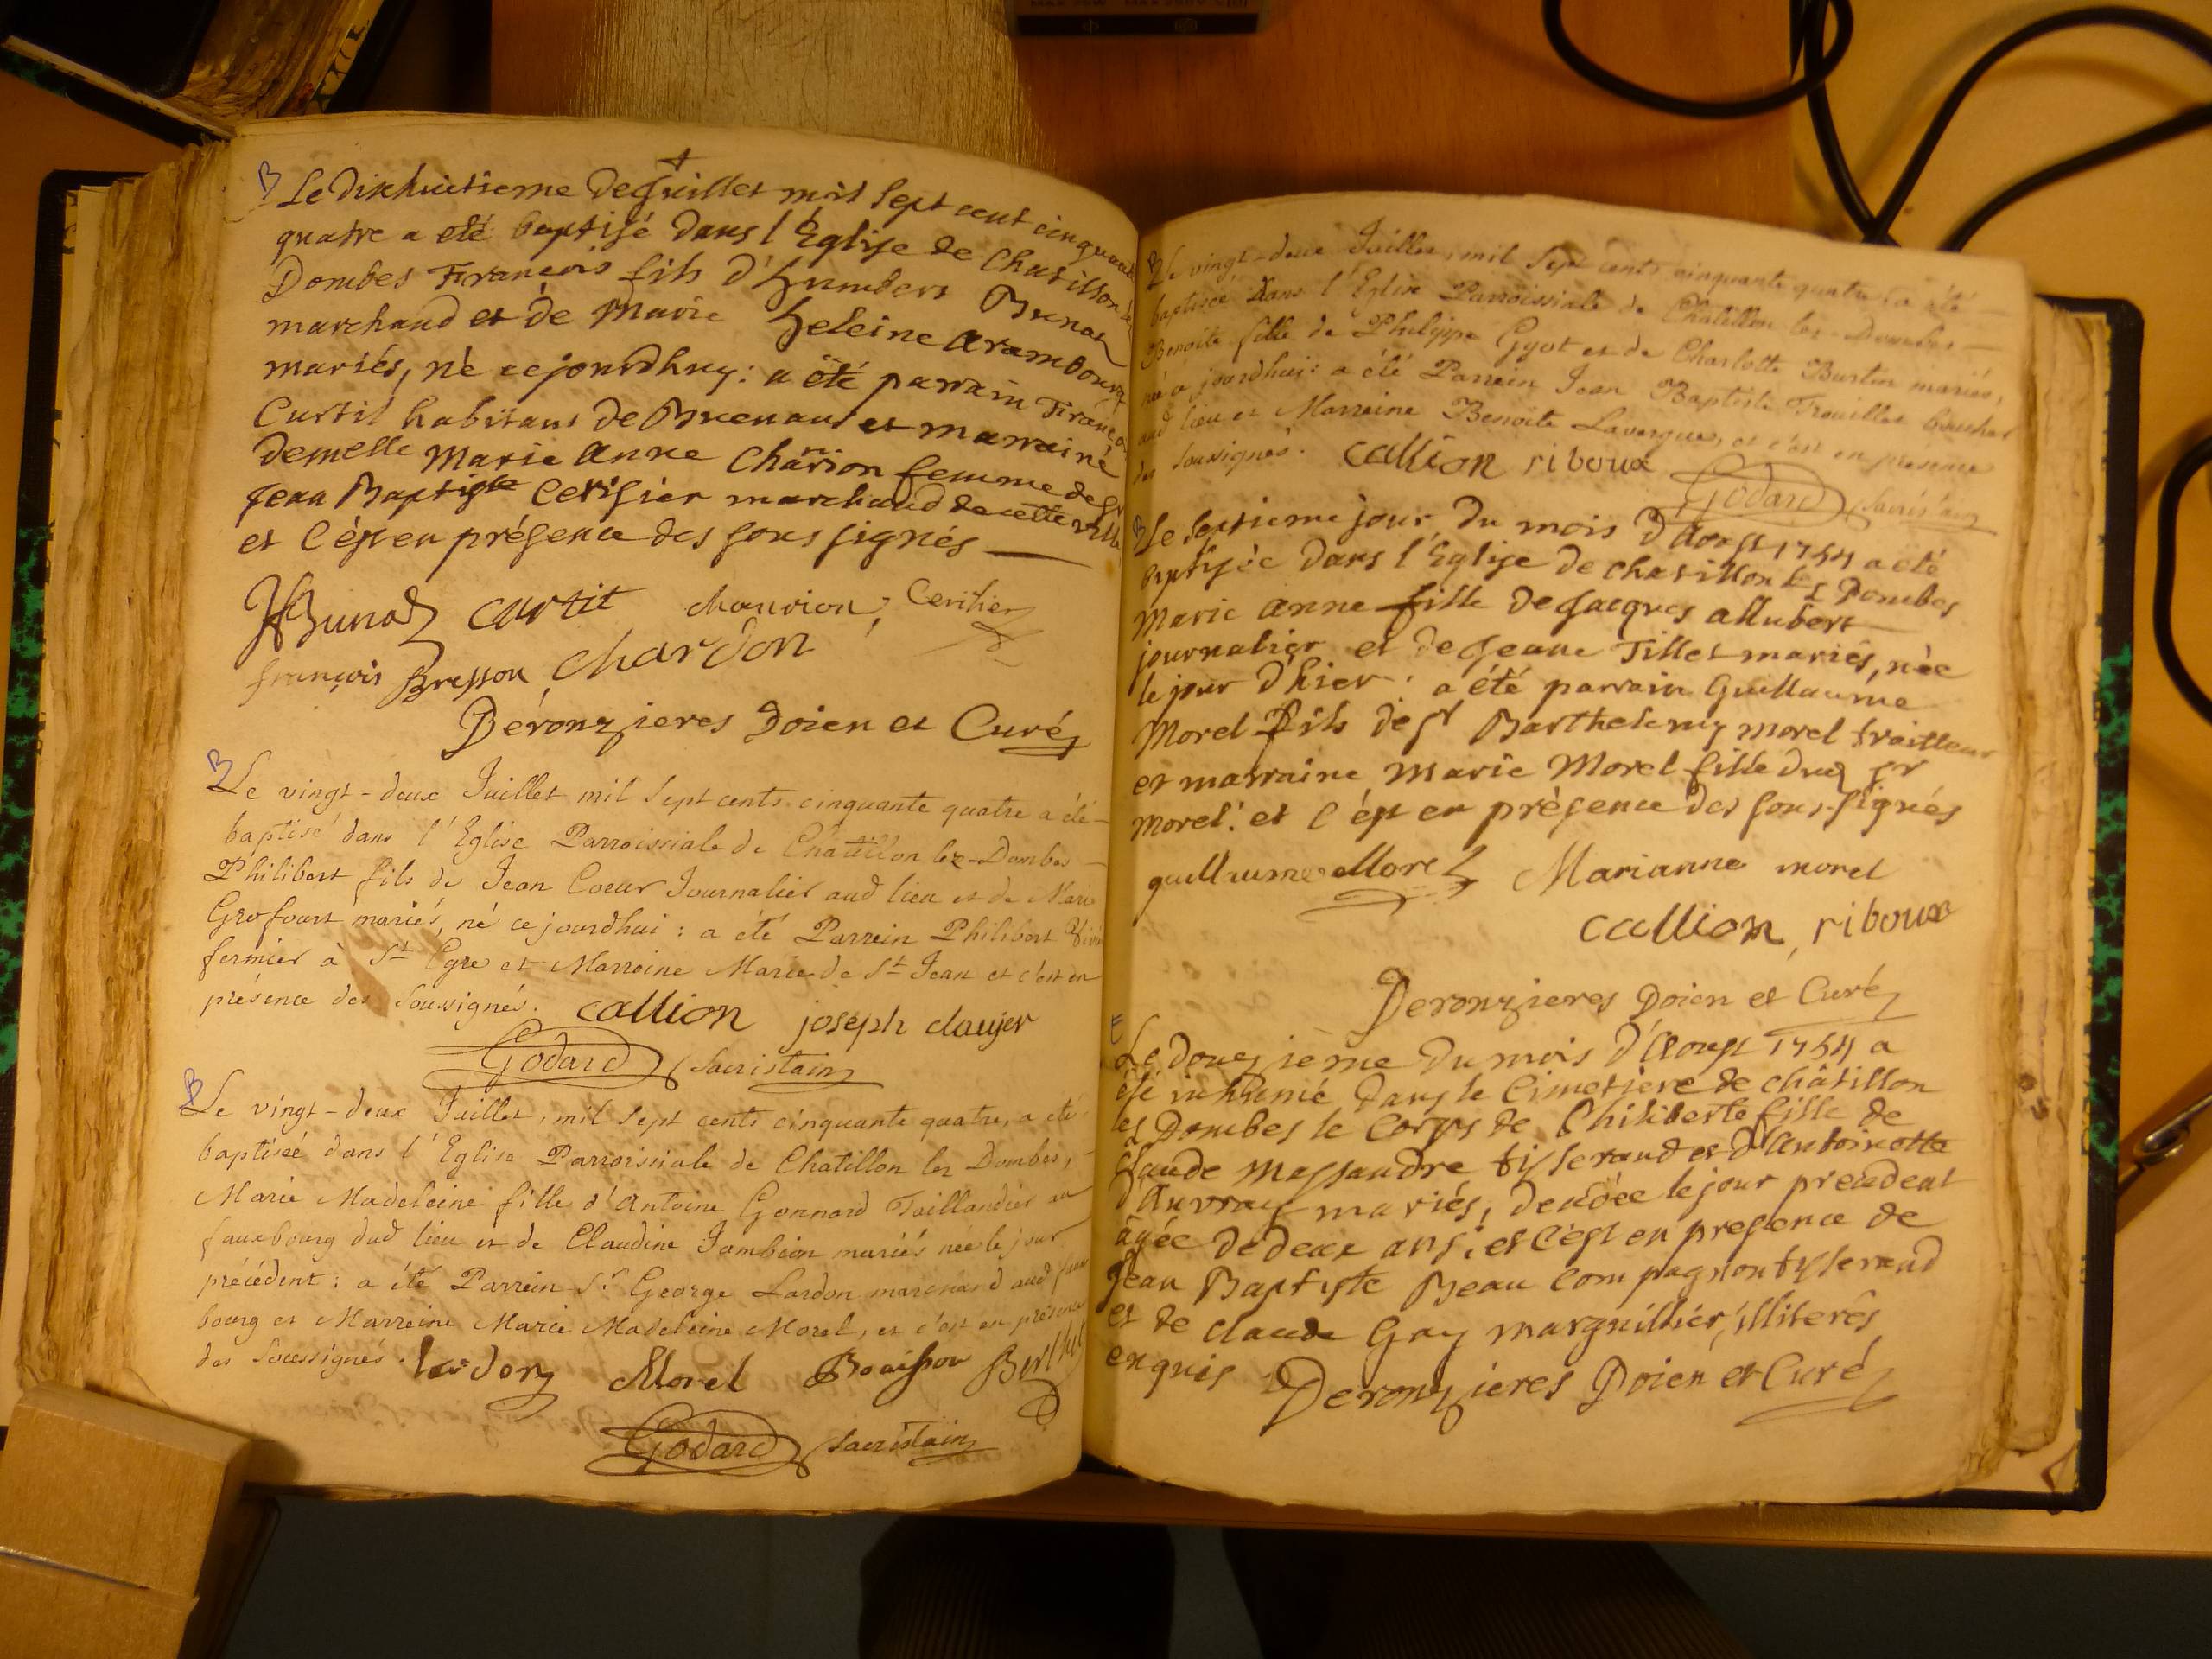 B Le dixhuitieme de Juillet mil sept cent cinquante
quatre a eté baptisé dans l'Eglise de Chatillon
Dombes François fils d'humbert Bunod
marchand et de Marie heleine arambourg
mariés, né ce jourdhuy: a été parrain François
Curtil habitans de Buenand et marraine
demelle Marie Anne Charion femme de Sr
Jean Baptiste Cerisier marchand de cette ville
et c'ést en présence des sous signés
HBunod Curtit chouvion, Cerisier
françois Bresson chardon
Déronzieres Doien et Curé
B Le vingt-deux Juillet mil sept cents cinquante quatre a été
baptisé dans l'Eglise Parroissiale de Chatillon lez-Dombes
Philibert fils de Jean Coeur Journalier aud lieu et de Marie
Grofourt mariés, né ce jourdhui: a été Parrein Philibert
fermier à St Egre et Marreine Marie de St Jean et c'est en
présence des Soussignés. callion joseph claujer
Godard Sacristain
B Le vingt-deux Juillet, mil sept cents cinquante quatre, a été
baptiseé dans l'Eglise Parroissiale de Chatillon lez Dombes,
Marie Madeleine fille d'Antoine Gonnard Taillandier au
fauxbourg dud lieu et de Claudine Jambion mariés née le jour
précédent: a été Parrein Sr George Lardon marchand aud faux
bourg et Marreine Marie Madeleine Morel, et c'est en présence
des Soussignés. lardon Morel Bouisson Berthet
Godard Sacristain
B Le vingt-deux Juillet, mil Sept cents cinquante quatre, a été
baptisée dans l'Eglise Parroissiale de Chatillon les-Dombes
Benoite fille de Philippe Gyot et de Charlotte Burtin mariés,
née a jourdhui: a été Parrein Jean Baptiste Trouillet boucher
aud lieu et Marreine Benoite Lavergue, et c'est en presence
des Soussignés. callion riboux
Godard Sacristain
B Le septieme jour du mois d'Aoust 1754 a eté
baptisée dans l'Eglise de chatillon les Dombes
Marie Anne fille de Jacques allubert
journalier et de Jeane Tillet mariés, née
le jour d'hier: a été parrain Guillaume
Morel fils de Sr Barthelemy morel traitteur
et marraine Marie Morel fille dud Sr
Morel: et c'ést en présence des sous-signés
guillaume Morel Marianne morel
callion, riboux
Deronzieres Doien et Curé
E Le douzieme du mois d'Aoust 1754 a
été inhumé dans le Cimetiere de châtillon
les Dombes le Corps de Philiberte fille de
Claude Massandre tisserand et d'Antoinette
d'Auvray mariés, decédée le jour precedent
âgée de deux ans; et c'ést en presence de
Jean Baptiste Beau Compagnon tisserand
et de claude Gay marguillier, illiterés
enquis Deronzieres Doien et Curé